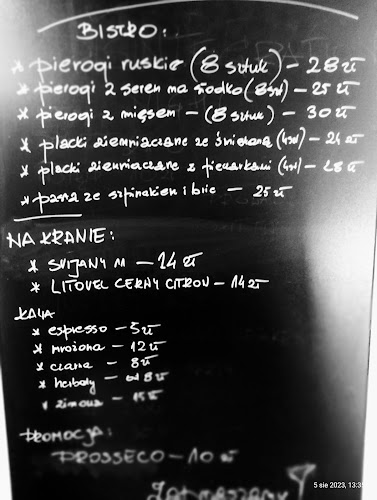 BISTRO:
* pierogi ruskie (8 sztuk) – 28 zł
* pierogi z serem na słodko (8szt) – 25 zł
* pierogi z mięsem – (8 sztuk) – 30 zł
* placki ziemniaczane ze śmietaną (4szt) – 24 zł
* placki ziemniaczane z pieczarkami (4szt) – 28 zł
* pasta ze szpinakiem i brie – 25 zł
NA KRANIE:
* SVIJANY M – 14 zł
* LITOVEL CERNY CITRON – 14 zł
KAWA
* espresso – 5 zł
* mrożona – 12 zł
* czarna – 8 zł
* herbaty – od 8 zł
* zimowa – 15 zł
PROMOCJA:
PROSSECO – 10 zł
Zapraszamy
5 sie 2023, 13:3